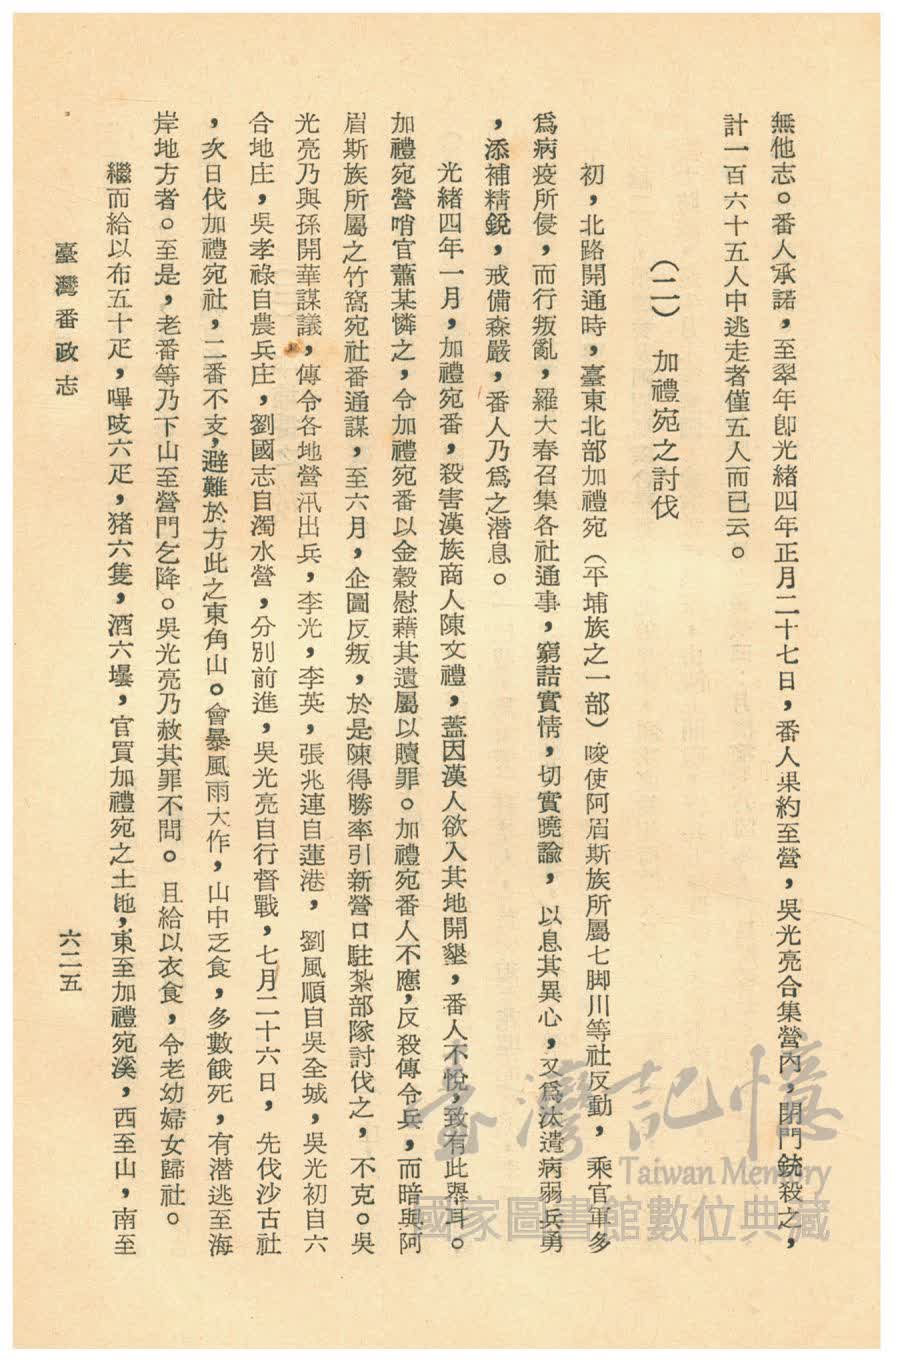 無他志。番人承諾，至翌年卽光緒四年正月二十七日，番人果約至營，吳光亮合集營內，閉門銃殺之，
計一百六十五人中逃走者僅五人而已云。
（二）　加禮宛之討伐
初，北路開通時，臺東北部加禮宛（平埔族之一部）唆使阿眉斯族所屬七脚川等社反動，乘官軍多
爲病疫所侵，而行叛亂，羅大春召集各社通事，窮詰實情，切實曉諭，以息其異心，又爲汰遣病弱兵勇
，添補精銳，戒備森嚴，番人乃爲之潛息。
光緒四年一月，加禮宛番，殺害漢族商人陳文禮，蓋因漢人欲入其地開墾，番人不悅，致有此舉耳。
加禮宛營哨官蕭某憐之，令加禮宛番以金穀慰藉其遺屬以贖罪。加禮宛番人不應，反殺傳令兵，而暗與阿
眉斯族所屬之竹窩宛社番通謀，至六月，企圖反叛，於是陳得勝率引新營口駐紮部隊討伐之，不克。吳
光亮乃與孫開華謀議，傳令各地營汛出兵，李光，李英，張兆連自蓮港，劉風順自吳全城，吳光初自六
合地庄，吳孝祿自農兵庄，劉國志自濁水營，分別前進，吳光亮自行督戰，七月二十六日，先伐沙古社
，次日伐加禮宛社，二番不支，避難於方此之東角山。會暴風雨大作，山中乏食，多數餓死，有潛逃至海
岸地方者。至是，老番等乃下山至營門乞降。吳光亮乃赦其罪不問。且給以衣食，令老幼婦女歸社。
繼而給以布五十疋，嗶吱六疋，猪六隻，酒六壜，官買加禮宛之土地，東至加禮宛溪，西至山，南至
臺灣番政志
六二五
臺灣記憶
Taiwan Memory
國家圖書館數位典藏